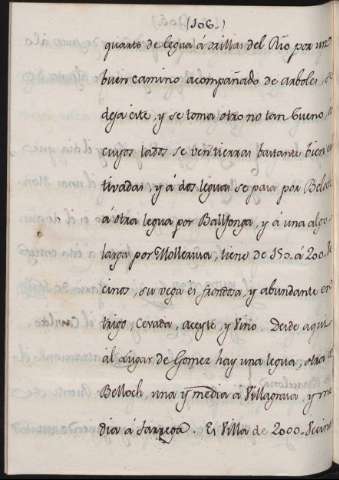 (106.)
quarto de legua á orillas del Rio por un
buen camino acompañado de arboles, se
deja este, y se toma otro no tan bueno, a
cuyos lados se ven tierras bastante bien cul
tivadas, y á dos leguas se pasa por Belloch
á otra legua por Ballfonga, y á una algo
larga por Mollerusa, tiene de 150. á 200. Ve
cinos, su vega es frondosa, y abundante en
trigo, Cevada, aceyte, y Vino. Desde aqui
al ajigar de Gomez hay una legua, otra á
Belloch, una y media á Villagrasa, y me
dia á Tarrega. Es Villa de 2000. Vecinos